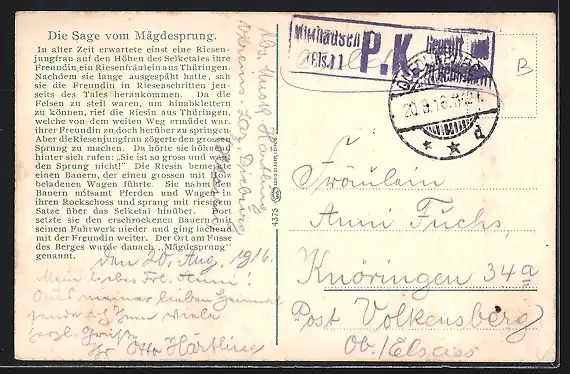 Die Sage vom Mägdesprung.
In alter Zeit erwartete einst eine Riesen-
jungfrau auf den Höhen des Selketales ihre
Freundin, ein Riesenfräulein aus Thüringen.
Nachdem sie lange ausgespäht hatte, sah
sie die Freundin in Riesenschritten jen-
seits des Tales herankommen. Da die
Felsen zu steil waren, um hinabklettern
zu können, rief die Riesin aus Thüringen,
welche von dem weiten Weg ermüdet war,
ihrer Freundin zu, doch herüber zu springen.
Aber die Riesenjungfrau zögerte den grossen
Sprung zu machen. Da hörte sie höhnend
hinter sich rufen: „Sie ist so gross und wagt
den Sprung nicht!" Die Riesin bemerkte
einen Bauern, der einen grossen mit Holz
beladenen Wagen führte. Sie nahm den
Bauern mitsamt Pferden und Wagen in
ihren Rockschoss und sprang mit riesigem
Satze über das Selketal hinüber. Dort
setzte sie den erschrockenen Bauern mit
seinem Fuhrwerk nieder und ging lachend
mit der Freundin weiter. Der Ort am Fusse
des Berges wurde danach „Mägdesprung"
genannt.
den 20. Aug. 1916.
Mein liebes Frl. Anni!
Aus meiner lieben Heimat
sende ich Ihnen viele
herzl. Grüsse
Ihr Otto Hartling
Hartling
Vereins-Laz.
4375
Mülhausen
i. Els. 11
P.K.
Geprüft und
20.8.16.11-12V.
* * d
B
Fräulein
Anni Fuchs,
Knöringen 34a
Post Volkensberg
Ob./Elsass